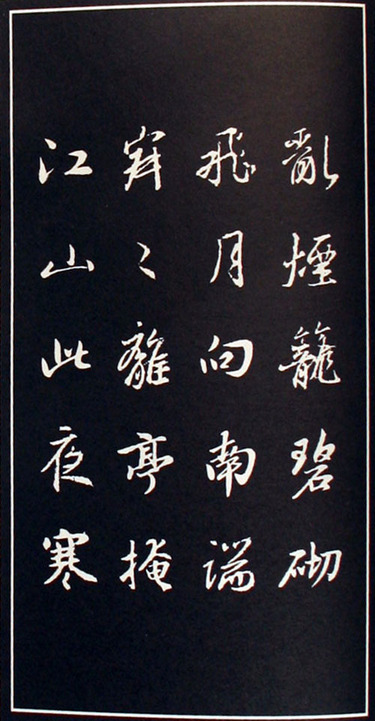 亂煙籠碧砌
飛月向南端
寂〻離亭掩
江山此夜寒